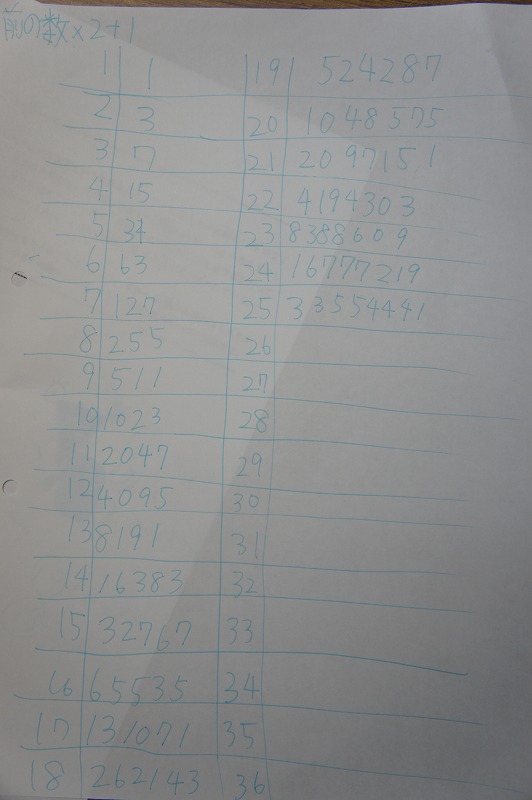 前の数×2+1
1 1
2 3
3 7
4 15
5 31
6 63
7 127
8 255
9 511
10 1023
11 2047
12 4095
13 8191
14 16383
15 32767
16 65535
17 131071
18 262143
19 524287
20 1048575
21 2097151
22 4194303
23 8388609
24 16777219
25 33554441
26
27
28
29
30
31
32
33
34
35
36